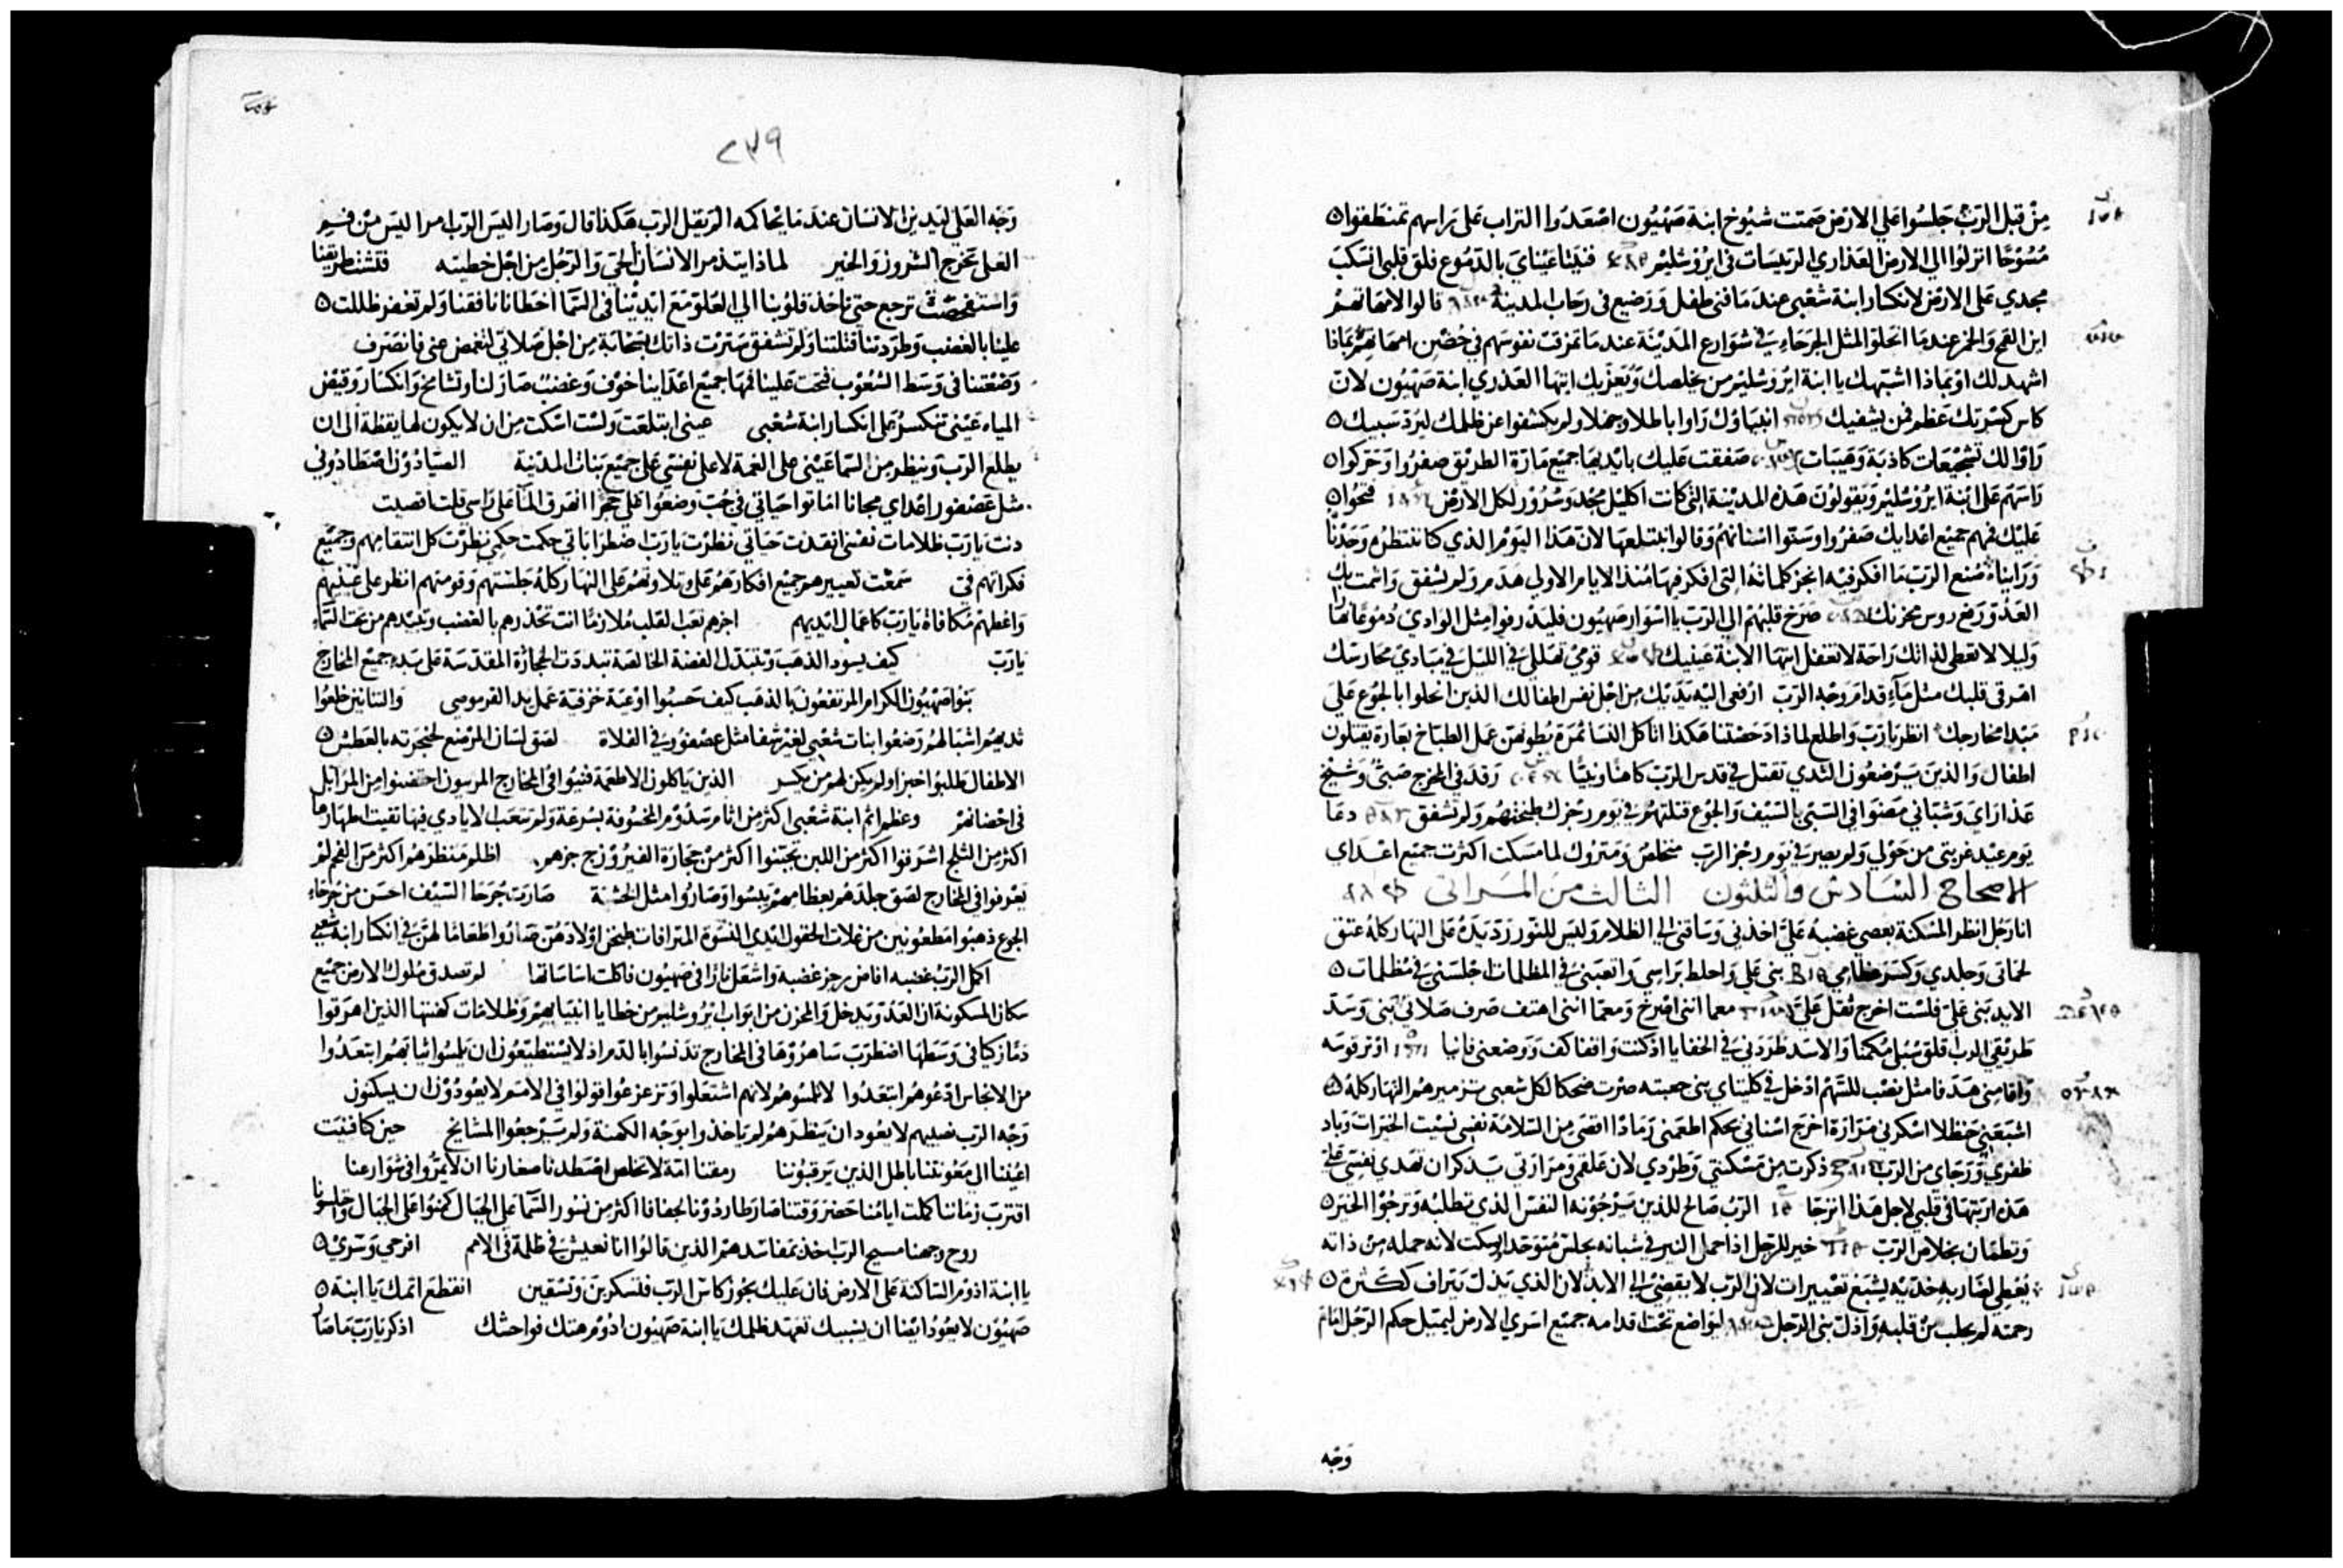 من قبل الرب جلسوا علي الارض صمتت شيوخ ابنة صهيون اصعدوا التراب على راسهم تمنطقوا
مسوحا انزلوا الي الارض العذاري الرئيسات في ايروشليم فنيتا عيناي بالدموع قلق قلبي انسكب
مجدي على الارض لانكسار ابنة شعبي عندما فنى طفل ورضيع في رحاب المدينة قالوا لامهاتهم
اين القمح والخمر عندما انحلوا مثل الجرحاء في شوارع المدينة عندما تمزقت نفوسهم في حضن امهاتهم بماذا
اشهد لك او بماذا اشبهك يا ابنة ايروشليم من يخلصك ويعزيك ايتها العذري ابنة صهيون لان
كاس كسرتك عظم فمن يشفيك انبياؤك راوا باطلا وجهلا ولم يكشفوا عن ظلمك ليرد سبيك
وراوا لك كاذبة صفقت عليك بايديها جميع مارة الطريق صفروا وحركوا
راسهم على ابنة ايروشليم ويقولون هذه المدينة التي كانت اكليل مجد وسرور لكل الارض فتحوا
عليك فمهم جميع اعدايك صفروا اسنانهم وقالوا نبتلعها لان هذا اليوم الذي كنا ننتظره وجدنا
ورايناه صنع الرب ما افكر فيه انجز كلماته التي افكر فيها منذ الايام الاولي هدم ولم يشفق واشمت بك
العدو ورفع روس محزنك صرخ قلبهم الي الرب يا اسوار صهيون فليذرفوا مثل الوادي دموعا نهارا
وليلا لا تعطي لذاتك راحة لا تغفل ايتها الابنة عينيك قومي تهللي في الليل في مبادي محارسك
اهرقي قلبك مثل ماء قدام وجه الرب ارفعي اليه يديك من اجل نفس اطفالك الذين انحلوا بالجوع علي
مبدا مخارجك انظر يا رب واطلع لماذا هكذا اتاكل النسا ثمرة بطونهن عمل الطباخ يقتلون
اطفال والذين يرضعون الثدي تقتل في قدس الرب كاهنا ونبيا رقد في المخرج صبي وشيخ
عذاراي وشباني مضوا في السبي بالسيف والجوع قتلتهم في يوم رجزك طبختهم ولم تشفق دعا
يوم عيد غربتي من حولي ولم يصير في يوم رجز الرب متخلص ومتروك لما مسكت اكثرت جميع اعداي
الاصحاح السادس والثلثون الثالث من المراثي
انا رجل انظر المسكنة بعصي غضبه علي اخذني وساقني الي الظلام وليس للنور رد يده على النهار كله عتق
لحماتي وجلدي وكسر عظامي بني علي واحاط براسي واتعبني في المظلمات اجلسني في مظلمات
الابد بني على فلست اخرج ثقل علي معما انني اصرخ ومعما انني اهتف صرف صلاتي بني وسد
طريقي قلق سبلي مكمنا والاسد طردني في الخفايا اذ كنت واقفا كف ووضعني فانيا اوتر قوسه
واقامني هدفا مثل نصب للسهم ادخل في كليتاي بني جعبته صرت ضحكا لكل شعبي مزميرهم النهار كله
اشبعني حنظلا اسكرني مرارة اخرج اسناني بحكم اطعمني رمادا اقصى من السلامة نفسي نسيت الخيرات وباد
ظفري ورجاي من الرب ذكرت من مسكنتي وطردي لان علقمي ومرارتي يتذكران تهدي نفسي علي
هذه ارتبها في قلبي لاجل هذا اترجا الرب صالح للذين يرجونه النفس الذي تطلبه وترجوا الخير
وتطمان بخلاص الرب خير للرجل اذا حمل النير في شبابه يجلس متوحدا ويسكت لانه حمله من ذاته
يعطي لضاربه خديه يشبع تعييرات لان الرب لا يقضي الي الابد لان الذي يتراف ككثرة
رحمته لم يجلب من قلبه واذل بني الرجل ليواضع تحت اقدامه جميع اسري الارض ليميل حكم الرجل امام
وجه
٢٣٩
وجه العلي ليدين الانسان عندما يحاكمه الم يقل الرب هكذا قال وصار اليس الرب امر اليس من فم
العلي تخرج الشرور والخير لماذا يتذمر الانسان الحي والرجل من اجل خطيته فلنفتش طريقنا
نرجع حتي ناخذ قلوبنا الي العلو مع ايدينا في السما اخطانا نافقنا ولم تغفر ظللت
علينا بالغضب وطردتنا قتلتنا ولم تشفق سترت ذاتك بسحابة من اجل صلاتي لتغمض عني فانصرف
وضعتنا في وسط الشعوب فتحت علينا فمها جميع اعداينا خوف وغضب صار لنا وتشامخ وانكسار وتفيض
المياه عيني تنكسر على انكسار ابنة شعبي عيني ابتلعت ولست اسكت من ان لا يكون لها يقظة الي ان
يطلع الرب وينظر من السما عيني على الغمة لا علي نفسي على جميع بنات المدينة الصيادون اصطادوني
مثل عصفور اعداي مجانا اماتوا حياتي في جب وضعوا علي حجرا انهرق الما على راسي قلت اقصيت
دنت يا رب ظلامات نفسي انقذت حياتي نظرت يا رب اضطراباتي حكمت حكمي نظرت كل انتقامهم وجميع
فكراتهم في سمعت تعييرهم جميع افكارهم على وتلاوتهم على النهار كله جلستهم وقومتهم انظر علي عينيهم
واعطهم مكافاة يا رب كاعمال ايديهم اجزهم تعب القلب ملازما انت تحذرهم بالغضب وتبيدهم من تحت السماء
يا رب كيف يسود الذهب وتتبدل الفضة الخالصة تبددت الحجارة المقدسة على بدء جميع المخارج
بنوا صهيون الكرام المرتفعون بالذهب كيف حسبوا اوعية خزفية عمل يدا القرموسي والتنانين خلعوا
ثديهم اشبالهم رضعوا بنات شعبي لغير شفا مثل عصفور في الفلاة لصق لسان المرضع لحنجرته بالعطش
الاطفال طلبوا خبزا ولم يكن لهم من يكسر الذين ياكلون الاطعمة فنيوا في المخارج المربيون احتضنوا من المزابل
في احضانهم وعظم اثم ابنة شعبي اكثر من اثام سدوم المخسوفة بسرعة ولم تتعب الايادي فيها نقيت اطهارها
اكثر من الثلج اشرقوا اكثر من اللبن تجبنوا اكثر من حجارة الفيروزج جزهم اظلم منظرهم اكثر من الفحم لم
يعرفوا في المخارج لصق جلدهم بعظامهم يبسوا وصاروا مثل الخشبة صارت جرحا السيف احسن من جرحاء
الجوع ذهبوا مطعونين من غلات الحقول ايدي النسوة المترافات طبخن اولادهن صاروا طعاما لهن في انكسار ابنة شعبي
اكمل الرب غضبه افاض رجز غضبه واشعل نارا في صهيون فاكلت اساساتها لم تصدق ملوك الارض جميع
سكان المسكونة ان العدو يدخل والمحزن من ابواب ايروشليم من خطايا انبيايهم وظلامات كهنتها الذين اهرقوا
دما زكيا في وسطها اضطرب ساهروها في المخارج تدنسوا بالدم اذ لا يستطيعون ان يلمسوا ثيابهم ابتعدوا
من الانجاس ادعوهم ابتعدوا لا تلمسوهم لانهم اشتعلوا وتزعزعوا قولوا في الامم لا يعودون ان يسكنون
وجه الرب نصيبهم لا يعود ان ينظرهم لم ياخذوا بوجه الكهنة ولم يرجعوا المشايخ حين كنا فنيت
اعيننا الي معونتنا باطل الذين يرقبوننا رمقنا امة لا تخلص اصطدنا صغارنا ان لا يمروا في شوارعنا
اقترب زماننا كملت ايامنا حضر وقتنا صار طاردونا خفافا اكثر من نسور السما علي الجبال كمنوا على الجبال
روح وجهنا مسيح الرب اخذ بمفاسدهم الذين قالوا انا نعيش في ظلمة في الامم افرحي وسري
يا ابنة ادوم الساكنة على الارض فان عليك يجوز كاس الرب فتسكرين وتستقين انقطع اثمك يا ابنة
صهيون لا يعود ايضا ان يسبيك تعهد ظلمك يا ابنة صهيون ادوم هتك فواحشك اذكر يا رب ما صار